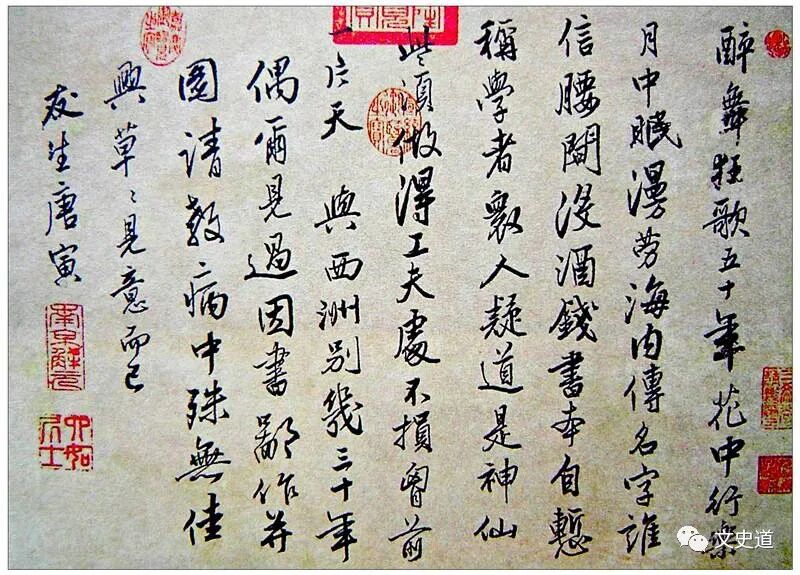 醉舞狂歌五十年花中行樂
月中眠漫勞海内傳名字誰
信腰間沒酒錢書本自慙
稱學者衆人疑道是神仙
些須做得工夫處不損胷前
一片天 與西洲別幾三十年
偶爾見過因書鄙作并
圖請教病中殊無佳
興草々見意而已
友生唐寅
南京解元
六如居士
文史道